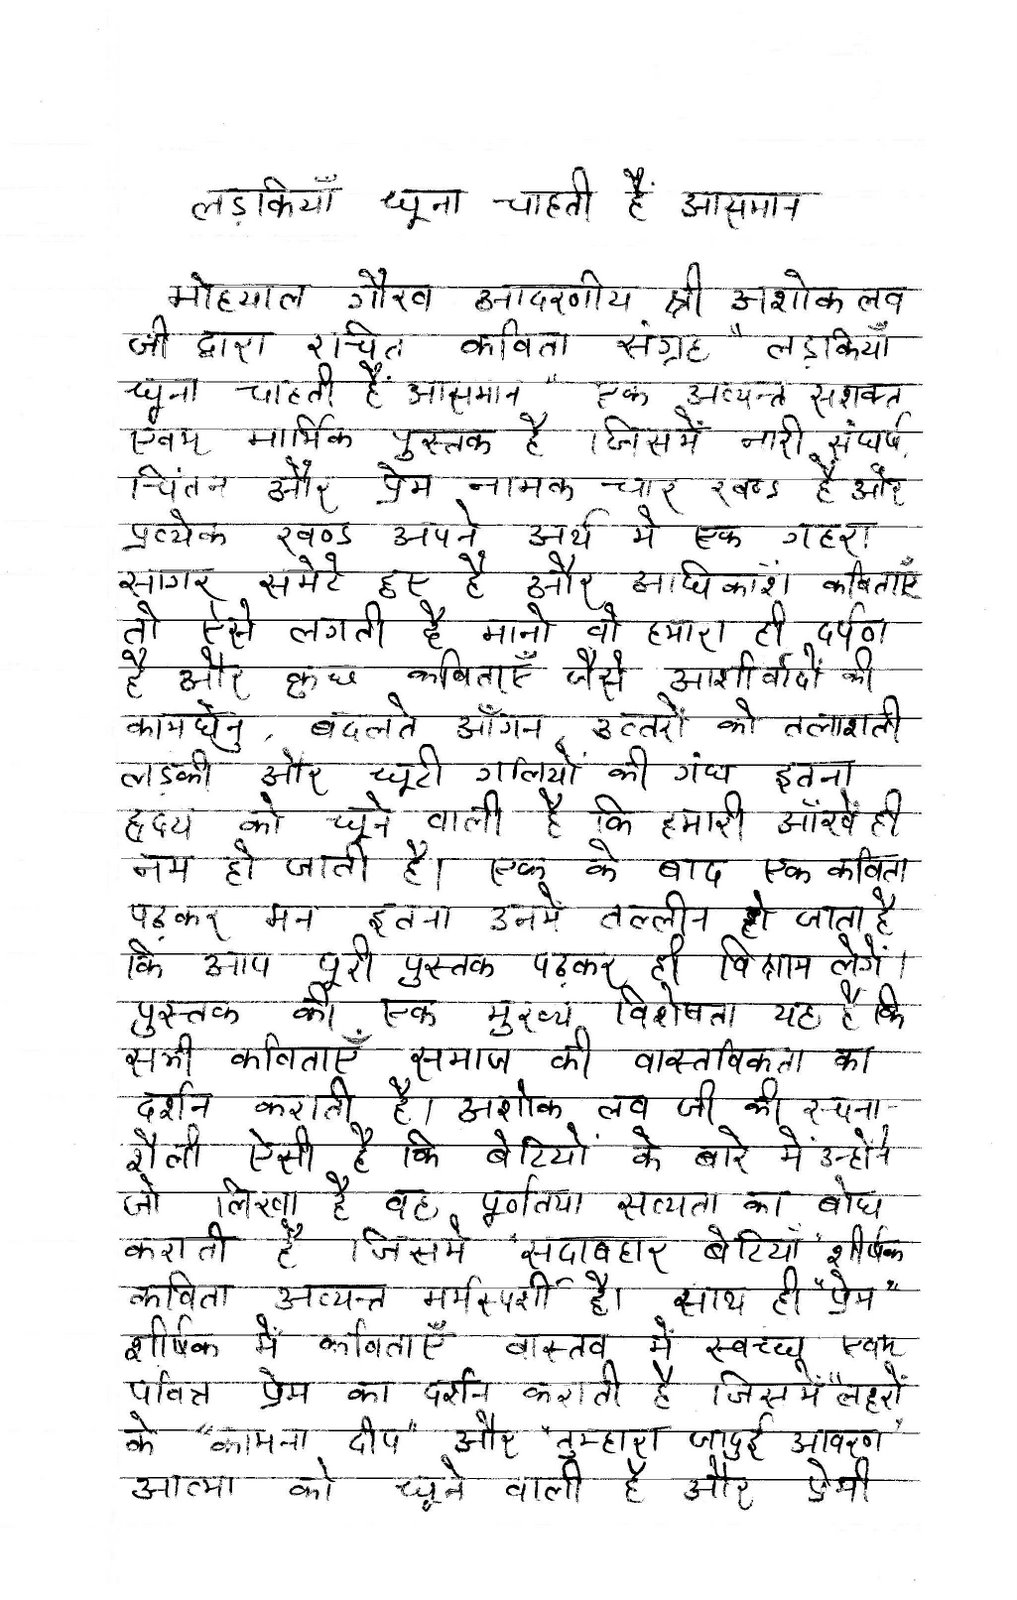 लड़कियाँ छूना चाहती हैं आसमान
मोहयाल गौरव आदरणीय श्री अशोक लव
जी द्वारा रचित कविता संग्रह "लड़कियाँ
छूना चाहती हैं आसमान" एक अत्यन्त सशक्त
एवम् मार्मिक पुस्तक है जिसमें नारी, संघर्ष,
चिंतन और प्रेम नामक चार खण्ड हैं और
प्रत्येक खण्ड अपने अर्थ में एक गहरा
सागर समेटे हुए है और अधिकांश कविताएँ
तो ऐसे लगती है मानो वो हमारा ही दर्पण
है और कुछ कविताएँ जैसे आशीर्वादों की
कामधेनु, बदलते आँगन, उत्तरों को तलाशती
लड़की और छूटी गलियों की गंध इतना
हृदय को छूने वाली है कि हमारी आँखें ही
नम हो जाती है। एक के बाद एक कविता
पढ़कर मन इतना उनमें तल्लीन हो जाता है
कि आप पूरी पुस्तक पढ़कर ही विश्राम लेगें।
पुस्तक की एक मुख्य विशेषता यह है कि
सभी कविताएँ समाज की वास्तविकता का
दर्शन कराती है। अशोक लव जी की रचना-
शैली ऐसी है कि बेटियों के बारे में उन्होंने
जो लिखा है वह पूर्णतया सत्यता का बोध
कराती है जिसमें "सदाबहार बेटियाँ" शीर्षक
कविता अत्यन्त मर्मस्पर्शी है। साथ ही "प्रेम"
शीर्षक में कविताएँ वास्तव में स्वच्छ एवम्
पवित्र प्रेम का दर्शन कराती है जिसमें "लहरों
के "कामना दीप" और "तुम्हारा जादुई आवरण"
आत्मा को छूने वाली है और प्रेमी